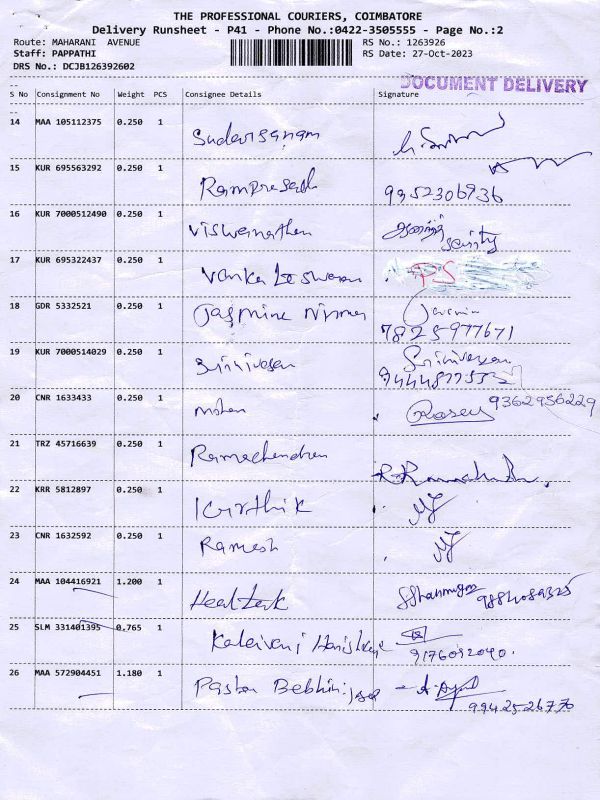 THE PROFESSIONAL COURIERS, COIMBATORE
Delivery Runsheet - P41 - Phone No.:0422-3505555 - Page No.:2
Route: MAHARANI AVENUE RS No.: 1263926
Staff: PAPPATHI RS Date: 27-Oct-2023
DRS No.: DCJB126392602
DOCUMENT DELIVERY
S No Consignment No Weight PCS Consignee Details Signature
14 MAA 105112375 0.250 1 Sudarsanam
15 KUR 695563292 0.250 1 Ramprasath 9952306936
16 KUR 7000512490 0.250 1 Viswanathan
17 KUR 695322437 0.250 1 PS
18 GDR 5332521 0.250 1 Jasmine Nirmer Jasmin
7825977671
19 KUR 7000514029 0.250 1 Srinivasan Srinivasan
20 CNR 1633433 0.250 1 mohan 9362956229
21 TRZ 45716639 0.250 1 Ramachandran
22 KRR 5812897 0.250 1 Karthik
23 CNR 1632592 0.250 1 Ramesh
24 MAA 104416921 1.200 1
25 SLM 331401395 0.765 1 Kalaivani
9176092040.
26 MAA 572904451 1.180 1 Pastor
9942526770